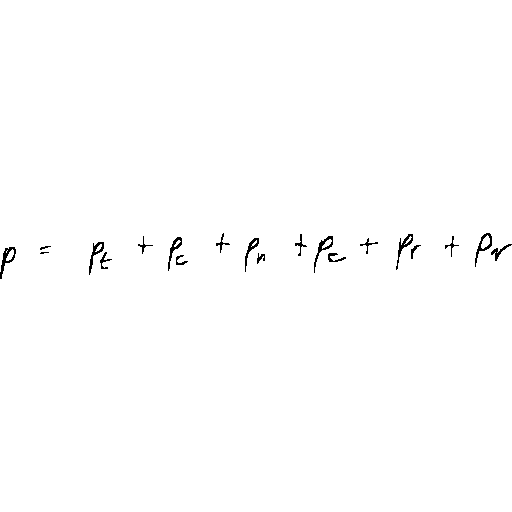 p = p_t + p_c + p_n + p_c + p_r + p_v